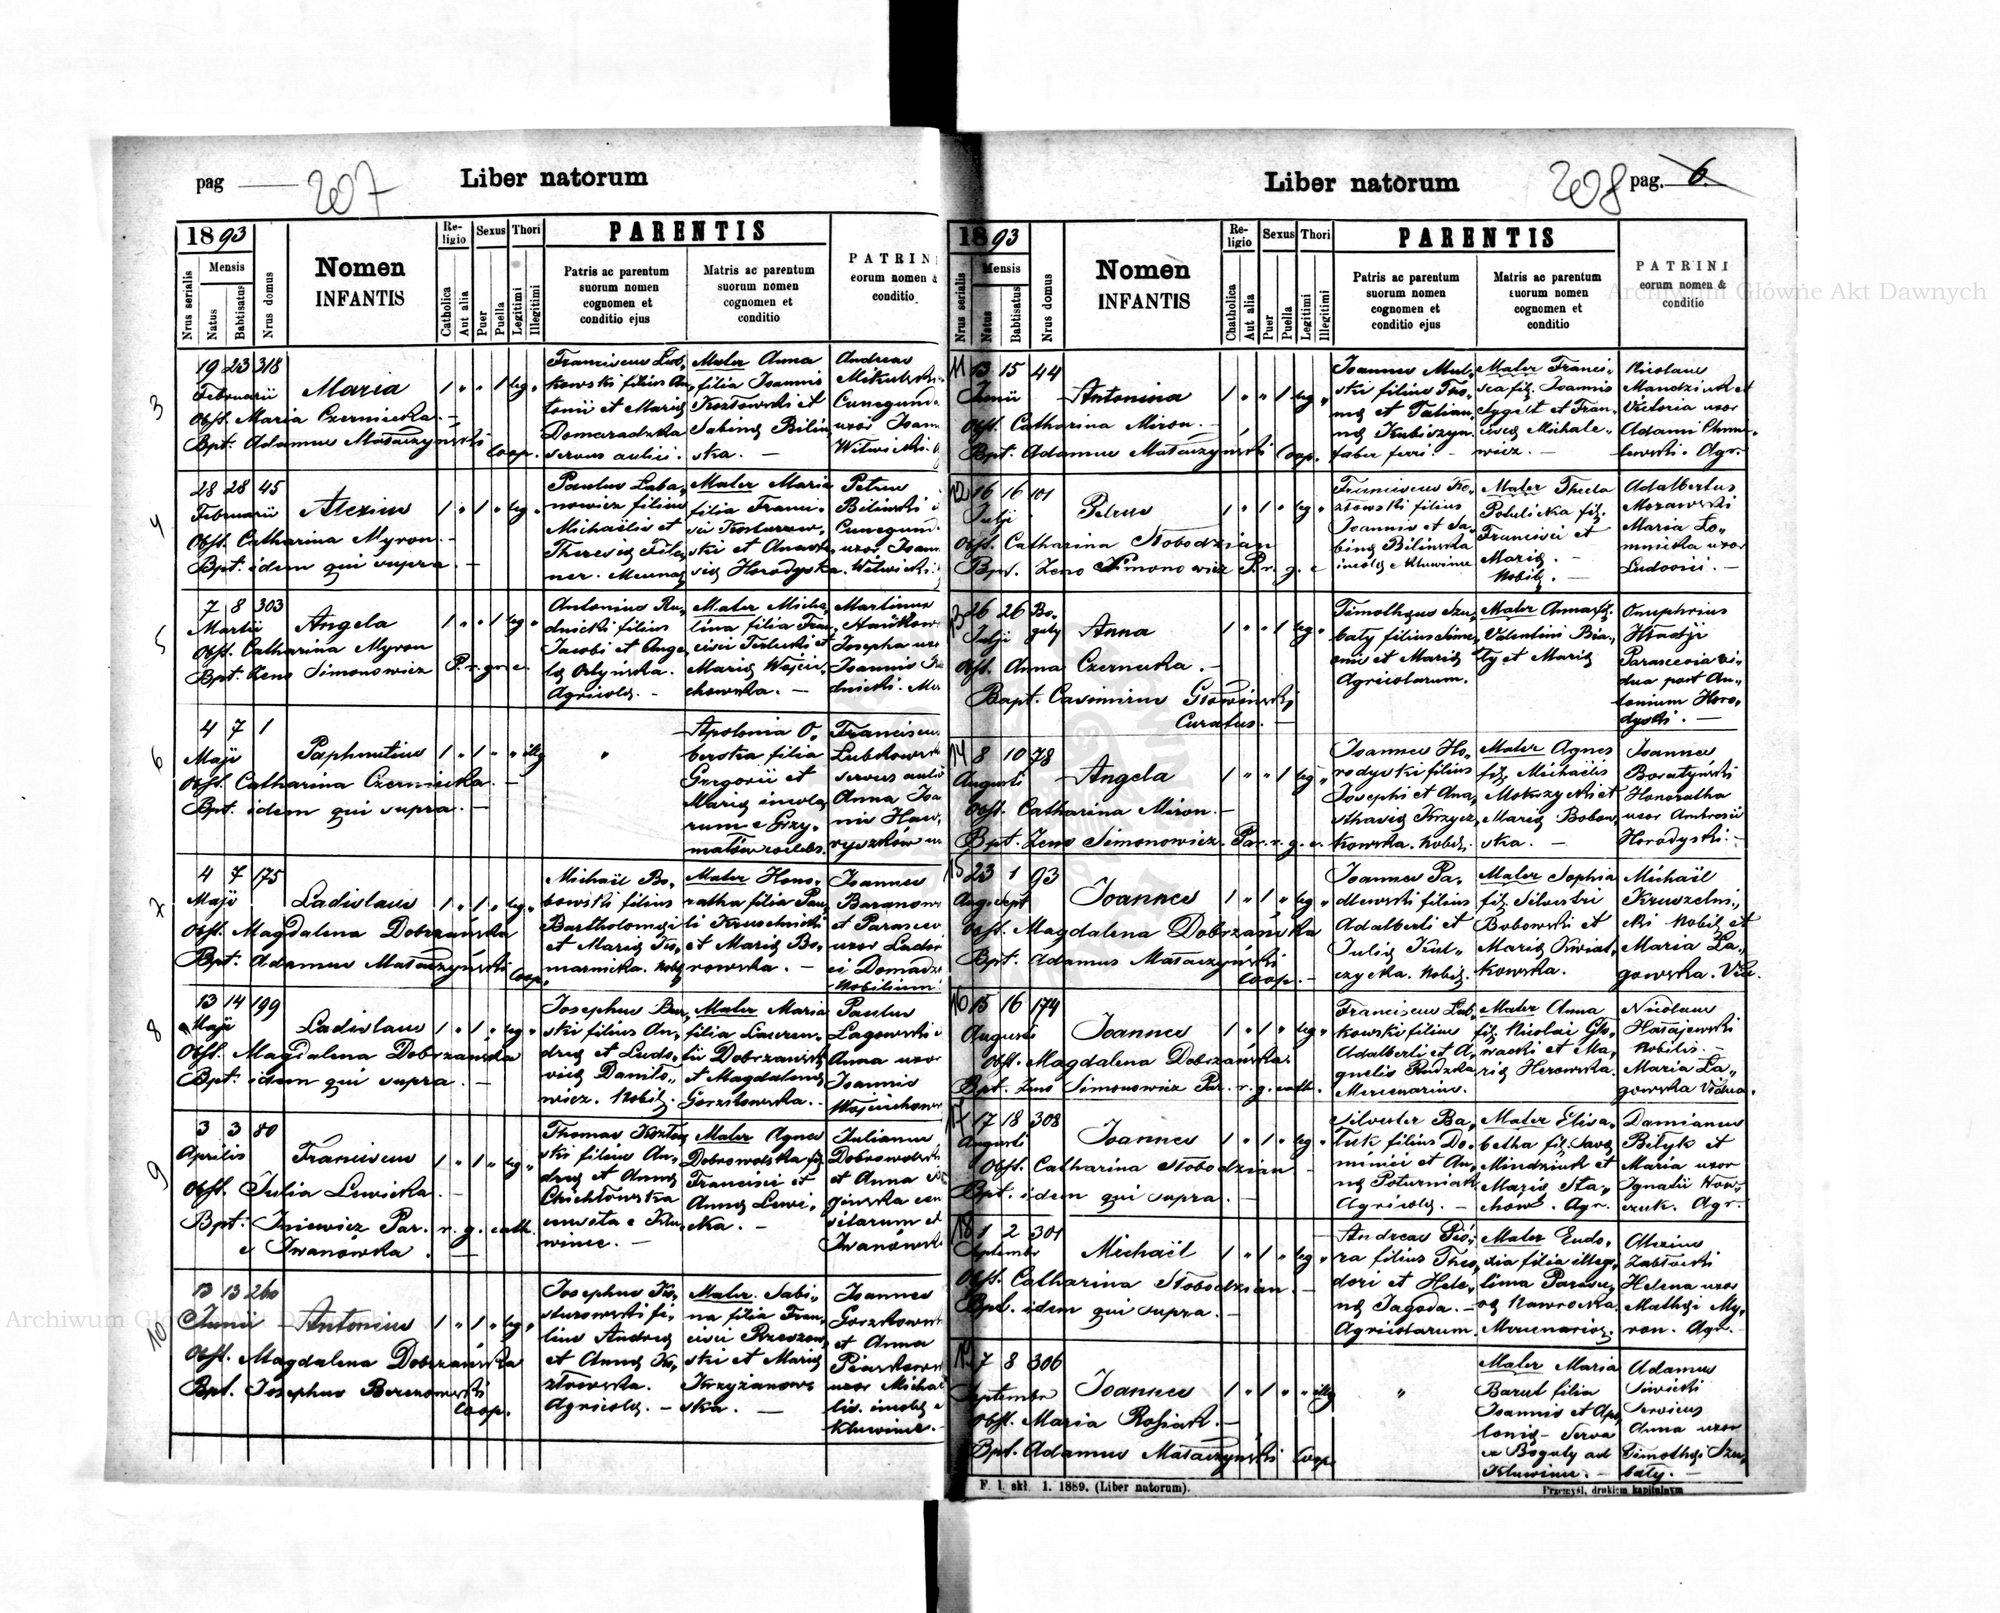 pag 207
Liber natorum
1893
Nrus serialis
Mensis
Natus
Babtisatus
Nrus domus
Nomen
INFANTIS
Religio
Catholica
Aut alia
Sexus
Puer
Puella
Thori
Legitimi
Illegitimi
PARENTIS
Patris ac parentum
suorum nomen
cognomen et
conditio ejus
Matris ac parentum
suorum nomen
cognomen et
conditio
PATRINI
eorum nomen &
conditio.
3
19 23 318
Februarii
Maria
1 " " 1 leg "
Obst. Maria Czernicka. -
Bpt. Adamus Mataczyński
Coop.
Franciscus Lub-
kowski filius An-
tonii et Mariæ
Domaradzka
servus aulici.
Mater Anna
filia Joannis
Kozłowski et
Sabinæ Bilin-
ska. -
Andreas
Cunegund
uxor Joann
Witwicki.
4
28 28 45
Februarii
Alexius
1 " 1 " leg "
Obst. Catharina Myron. -
Bpt. idem qui supra. -
Paulus Laba-
nowicz filius
Michaëlis et
Theresiæ
Mater Maria
filia Franci-
sci
ski et Anasta-
siæ Horodyska.
Petrus
Biliński
Cunegund
uxor Joann
Witwicki.
5
7 8 303
Martii
Angela
1 " " 1 leg "
Obst. Catharina Myron
Bpt. Zeno Simonowicz P. r. gr. c.
Antonius Ru-
dnicki filius
Jacobi et Ange-
læ Orlyńska.
Agricolæ. -
Mater Micha-
lina filia Fran-
cisci Terlecki et
Mariæ Wojcie-
chowska. -
Martinus
Josepha uxo
Joannis
dnicki.
6
4 7 1
Maji
Paphnutius
1 " 1 " " illeg
Obst. Catharina Czernicka. -
Bpt. idem qui supra. -
"
Apolonia O-
filia
Gregorii et
Mariæ incola-
rum e Grzy-
małów cœlebs.
Franciscus
Lubkowski
servus aulic
Anna Joa
nis Haw-
ryszków
7
4 7 175
Maji
Ladislaus
1 " 1 " leg "
Obst. Magdalena Dobrzańska
Bpt. Adamus Mataczyński
Coop.
Michaël Bo-
bowski filius
Bartholomæi
et Mariæ Ko-
marnicka. Nobil.
Mater Hono-
ratha filia Pau-
li Kruszelnicki
et Mariæ Bo-
rowska. -
Joannes
Baranow
et Parascev
uxor Lador
ci
Nobilium
8
13 14 199
Maji
Ladislaus
1 " 1 " leg "
Obst. Magdalena Dobrzańska
Bpt. idem qui supra. -
Josephus
ski filius An-
dreæ et Ludo-
vicæ Daniło-
wicz. Nobil.
Mater Maria
filia Lauren-
tii Dobrzański
et Magdalenæ
Gorzkowska. -
Paulus
Lagowski
Anna uxor
Joannis
Wojciechow
9
3 3 80
Aprilis
Franciscus
1 " 1 " leg "
Obst. Julia Lewicka. -
Bpt. Iniewicz Par. r. g. cath.
e Iwanówka. -
Thomas Kozłow-
ski filius An-
dreæ et Annæ
e Klu-
wince. -
Mater Agnes
Dobrowolska fil.
Francisci et
Annæ Lewi-
cka. -
Julianus
Dobrowolski
et Anna
Iwanówka
10
13 13 260
Junii
Antonius
1 " 1 " leg "
Obst. Magdalena Dobrzańska
Bpt. Josephus Berezowski
Coop.
Josephus Ko-
sturowski fi-
lius Andreæ
et Annæ Ko-
złowska.
Agricolæ. -
Mater. Sabi-
na filia Fran-
cisci Rzeszow-
ski et Mariæ
Krzyżanow-
ska. -
Joannes
Gorzkowski
et Anna
uxor Micha
lis. incolæ e
Kluwince. -
Liber natorum
208 pag. 6.
1893
Nrus serialis
Mensis
Natus
Babtisatus
Nrus domus
Nomen
INFANTIS
Religio
Chatholica
Aut alia
Sexus
Puer
Puella
Thori
Legitimi
Illegitimi
PARENTIS
Patris ac parentum
suorum nomen
cognomen et
conditio ejus
Matris ac parentum
suorum nomen
cognomen et
conditio
PATRINI
eorum nomen &
conditio
11 13 15 44
Junii
Antonina
1 " " 1 leg "
Obst. Catharina Miron. -
Bpt. Adamus Mataczyński Coop.
Joannes
ski filius Tho-
mæ et Tatian-
næ Kubiszyn.
faber ferri. -
Mater Francis-
ca fil. Joannis
et Fran-
ciscæ Michale-
wicz. -
Nicolaus
Mandziuk et
Victoria uxor
Adami Chmie-
lewski. Agr.
12 16 16 101
Julji
Petrus
1 " 1 " leg "
Obst. Catharina Słobodzian
Bpt. Zeno Simonowicz P. r. g. c
Franciscus Ko-
złowski filius
Joannis et Sa-
binæ Bilińska
incolæ e Kluwince
Mater Thecla
Potulicka fil.
Francisci et
Mariæ.
Nobil. -
Adalbertus
Morawski
Maria Ło-
mnicka uxor
Ludovici. -
13 26 26 Bo-
guty
Julji
Anna
1 " " 1 leg "
Obst. Anna Czernecka. -
Bapt. Casimirus Głowiński
Curatus. -
Timothæus Szu-
baty filius Sime-
onis et Mariæ
Agricolarum.
Mater Anna fil.
Valentini Bia-
ły et Mariæ
Onuphrius
Hładyj
Parascevia vi-
dua post An-
tonium Horo-
dyski. -
14 8 10 78
Augusti
Angela
1 " " 1 leg "
Obst. Catharina Miron. -
Bpt. Zeno Simonowicz. Par. r. g. c.
Joannes Ho-
rodyski filius
Josephi et Ana-
sthasiæ Krzycz-
kowska. Nobil.
Mater Agnes
fil. Michaëlis
Mokrzycki et
Mariæ Bobow-
ska. -
Joannes
Boratyński
Honoratha
uxor Ambrosii
Horodyski. -
15 23 1 93
Aug. Sept
Joannes
1 " 1 " leg "
Obst. Magdalena Dobrzańska
Bpt. Adamus Mataczyński
Coop. -
Joannes Pa-
dlewski filius
Adalberti et
Juliæ Kul-
czycka. Nobil.
Mater Sophia
fil. Silvestri
Bobowski et
Mariæ Kwiat-
kowska.
Michaël
Kruszelni-
cki Nobil. et
Maria Ła-
gowska. Vid.
16 15 16 174
Augusti
Joannes
1 " 1 " leg "
Obst. Magdalena Dobrzańska.
Bpt. Zeno Simonowicz Par. r. g. cath.
Franciscus Lub-
kowski filius
Adalberti et A-
gnetis Rudzka
Mercenarius.
Mater Anna
fil. Nicolai Gło-
wacki et Ma-
riæ Herowska.
Nicolaus
Hałajewski
Nobilis. -
Maria Ła-
gowska Vidua.
17 17 18 308
Augusti
Joannes
1 " 1 " leg "
Obst. Catharina Słobodzian -
Bpt. idem qui supra. -
Silvester Ba-
filius Do-
minici et An-
næ Poturniak
Agricolæ. -
Mater Elisa-
betha fil. Savæ
Mindziuk et
Mariæ Sta-
chow. Agr.
Damianus
Biłyk et
Maria uxor
Ignatii How-
czuk. Agr.
18 1 2 301
Septembr
Michaël
1 " 1 " leg "
Obst. Catharina Słobodzian. -
Bpt. idem qui supra. -
Andreas Pió-
ra filius Theo-
dori et Hele-
næ Jagoda. -
Agricolarum.
Mater Eudo-
xia filia illegi-
tima Parasce-
væ Nawrocka.
Mercenariæ.
Alexius
Zatłocki
Helena uxor
Mathæi My-
ron. Agr. -
19 7 8 306
Septembr
Joannes
1 " 1 " " illeg
Obst. Maria Rosiak. -
Bpt. Adamus Mataczyński Coop.
"
Mater Maria
Barut filia
Joannis et Apo-
loniæ - Serva
ex Boguty ad
Kluwince. -
Adamus
Siwicki
Servicus
Anna uxor
Timothæi Szu-
baty. -
F. l. skł. 1. 1889. (Liber natorum).
Przemyśl, drukiem kapitulnym
Archiwum Główne Akt Dawnych
Archiwum Główne Akt Dawnych